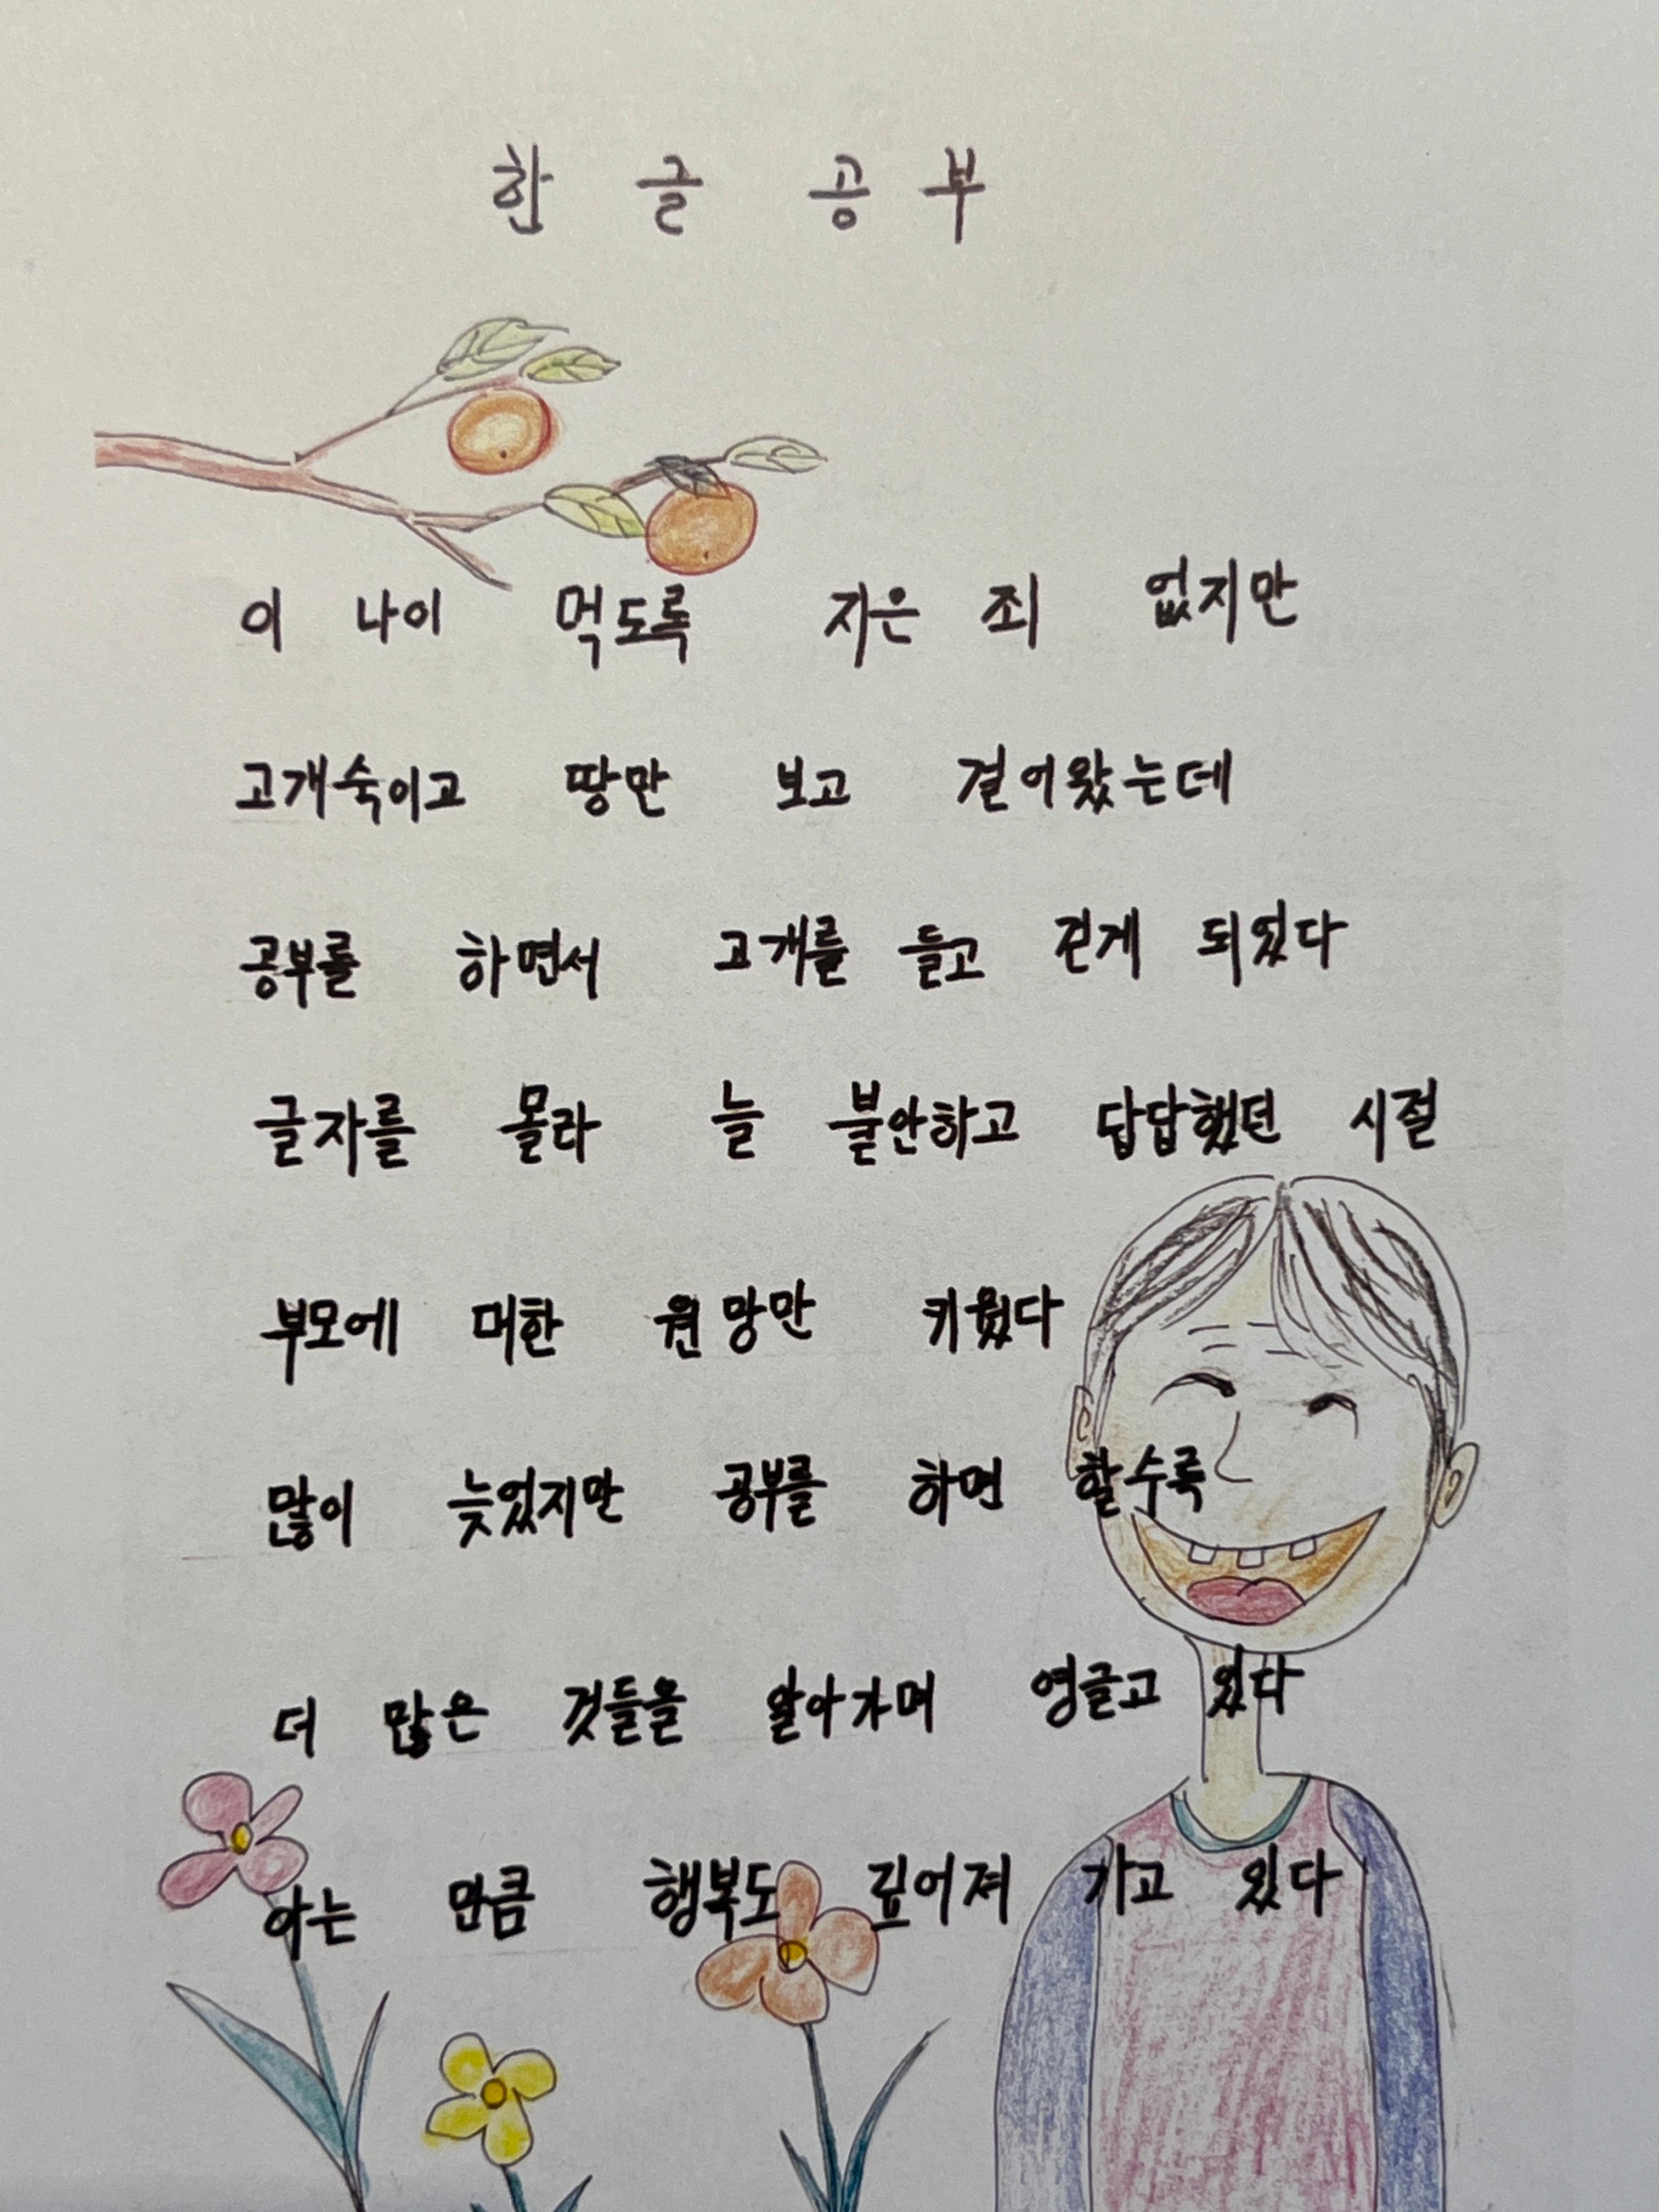 한글 공부
이 나이 먹도록 지은 죄 없지만
고개숙이고 땅만 보고 걸어왔는데
공부를 하면서 고개를 들고 걷게 되었다
글자를 몰라 늘 불안하고 답답했던 시절
부모에 대한 원망만 키웠다
많이 늦었지만 공부를 하면 할수록
더 많은 것들을 알아가며 영글고 있다
아는 만큼 행복도 깊어져 가고 있다